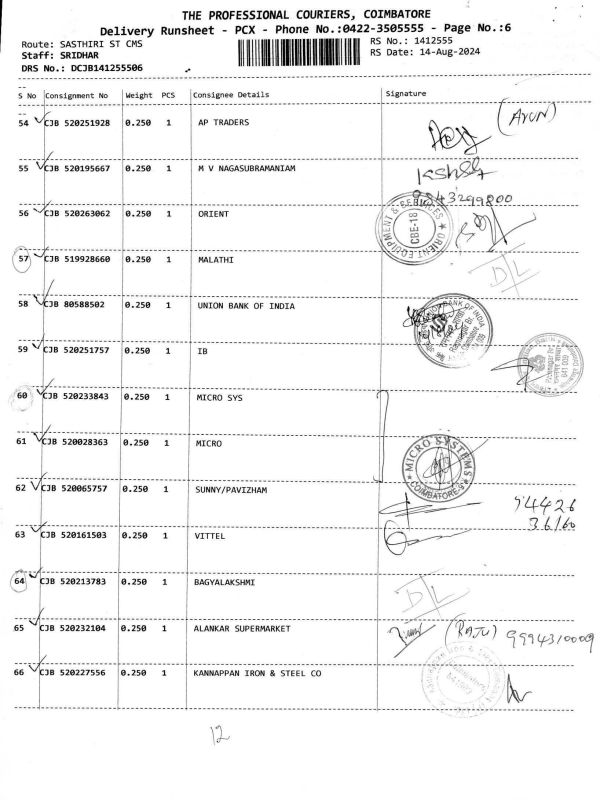 THE PROFESSIONAL COURIERS, COIMBATORE
Delivery Runsheet - PCX - Phone No.:0422-3505555 - Page No.:6
Route: SASTHIRI ST CMS
RS No.: 1412555
Staff: SRIDHAR
RS Date: 14-Aug-2024
DRS No.: DCJB141255506
S No Consignment No Weight PCS Consignee Details Signature
54 CJB 520251928 0.250 1 AP TRADERS (ARUN)
55 CJB 520195667 0.250 1 M V NAGASUBRAMANIAM
56 CJB 520263062 0.250 1 ORIENT
ORIENT EQUIPMENT & SERVICES
CBE-18
57 CJB 519928660 0.250 1 MALATHI D/L
58 CJB 80588502 0.250 1 UNION BANK OF INDIA
BANK OF INDIA
59 CJB 520251757 0.250 1 IB
641 009
60 CJB 520233843 0.250 1 MICRO SYS
61 CJB 520028363 0.250 1 MICRO
MICRO SYSTEMS
COIMBATORE-9
62 CJB 520065757 0.250 1 SUNNY/PAVIZHAM 94426
36160
63 CJB 520161503 0.250 1 VITTEL
64 CJB 520213783 0.250 1 BAGYALAKSHMI D/L
65 CJB 520232104 0.250 1 ALANKAR SUPERMARKET (RAJU) 9994310009
66 CJB 520227556 0.250 1 KANNAPPAN IRON & STEEL CO
12